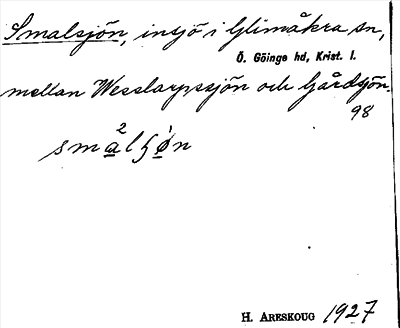 Smalsjön, insjö i Glimåkra sn,
Ö. Göinge hd, Krist. l.
mellan Wesslarpssjön och Gårdsjön.
98
sma²lʃø̀n
H. Areskoug 1927